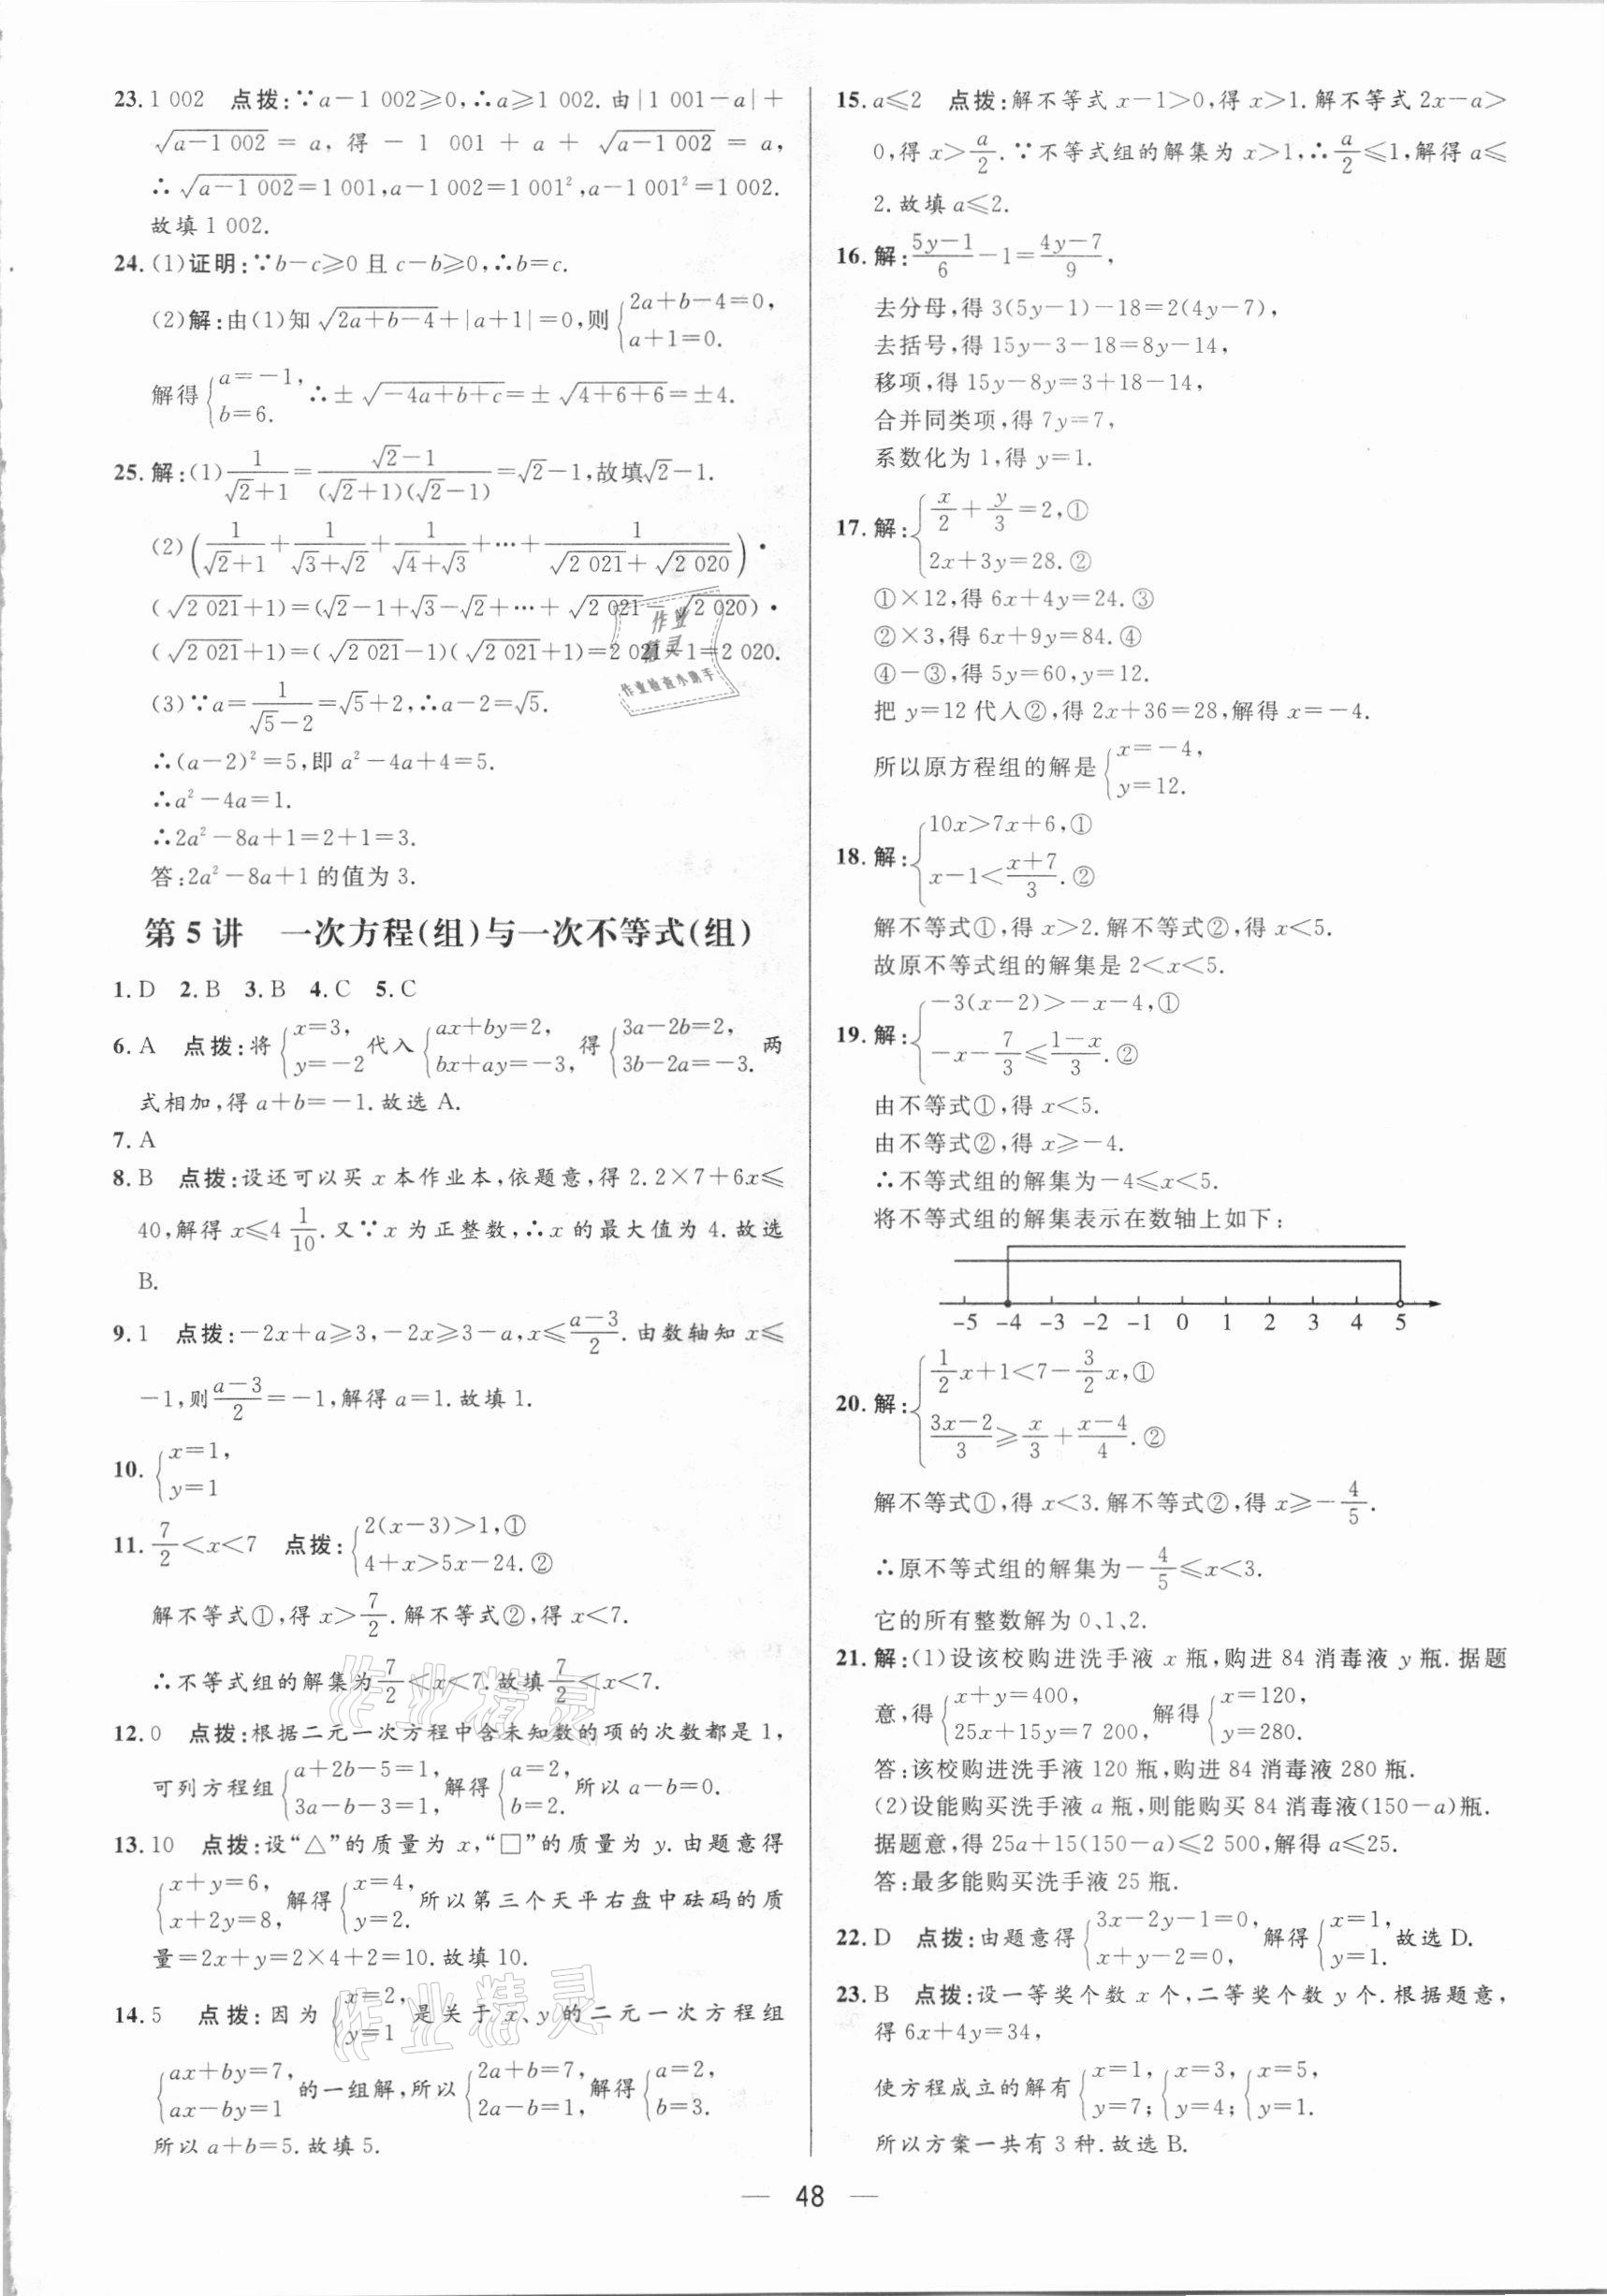 23. 1 002 点拨:∵a-1 002⩾0,∴a⩾1 002. 由|1 001-a|+
√(a-1 002)=a, 得 -1 001+a+√(a-1 002)=a,
∴√(a-1 002)=1 001,a-1 002=1 001²,a-1 001²=1 002.
故填1 002.
24. (1)证明:∵b-c⩾0且c-b⩾0,∴b=c.
(2)解:由(1)知√(2a+b-4)+|a+1|=0,则{2a+b-4=0, a+1=0.
解得{a=-1, b=6. ∴±√(-4a+b+c)=±√(4+6+6)=±4.
25. 解:(1)1/(√2+1)=(√2-1)/((√2+1)(√2-1))=√2-1,故填√2-1.
(2)(1/(√2+1)+1/(√3+√2)+1/(√4+√3)+…+1/(√2 021+√2 020))·
(√2 021+1)=(√2-1+√3-√2+…+√2 021-√2 020)·
(√2 021+1)=(√2 021-1)(√2 021+1)=2 021-1=2 020.
(3)∵a=1/(√5-2)=√5+2,∴a-2=√5.
∴(a-2)²=5,即a²-4a+4=5.
∴a²-4a=1.
∴2a²-8a+1=2+1=3.
答:2a²-8a+1的值为3.
第5讲 一次方程(组)与一次不等式(组)
1. D 2. B 3. B 4. C 5. C
6. A 点拨:将{x=3, y=-2代入{ax+by=2, bx+ay=-3,得{3a-2b=2, 3b-2a=-3.两
式相加,得a+b=-1.故选A.
7. A
8. B 点拨:设还可以买x本作业本,依题意,得2.2×7+6x⩽
40,解得x⩽4 1/10.又∵x为正整数,∴x的最大值为4.故选
B.
9. 1 点拨:-2x+a⩾3,-2x⩾3-a,x⩽(a-3)/2.由数轴知x⩽
-1,则(a-3)/2=-1,解得a=1.故填1.
10. {x=1, y=1
11. 7/2<x<7 点拨:{2(x-3)>1,① 4+x>5x-24.②
解不等式①,得x>7/2.解不等式②,得x<7.
∴不等式组的解集为7/2<x<7.故填7/2<x<7.
12. 0 点拨:根据二元一次方程中含未知数的项的次数都是1,
可列方程组{a+2b-5=1, 3a-b-3=1,解得{a=2, b=2.所以a-b=0.
13. 10 点拨:设“△”的质量为x,“□”的质量为y.由题意得
{x+y=6, x+2y=8,解得{x=4, y=2.所以第三个天平右盘中砝码的质
量=2x+y=2×4+2=10.故填10.
14. 5 点拨:因为{x=2, y=1是关于x、y的二元一次方程组
{ax+by=7, ax-by=1的一组解,所以{2a+b=7, 2a-b=1,解得{a=2, b=3.
所以a+b=5.故填5.
15. a⩽2 点拨:解不等式x-1>0,得x>1.解不等式2x-a>
0,得x>a/2.∵不等式组的解集为x>1,∴a/2⩽1,解得a⩽
2.故填a⩽2.
16. 解:(5y-1)/6-1=(4y-7)/9,
去分母,得3(5y-1)-18=2(4y-7),
去括号,得15y-3-18=8y-14,
移项,得15y-8y=3+18-14,
合并同类项,得7y=7,
系数化为1,得y=1.
17. 解:{x/2+y/3=2,① 2x+3y=28.②
①×12,得6x+4y=24.③
②×3,得6x+9y=84.④
④-③,得5y=60,y=12.
把y=12代入②,得2x+36=28,解得x=-4.
所以原方程组的解是{x=-4, y=12.
18. 解:{10x>7x+6,① x-1<(x+7)/3.②
解不等式①,得x>2.解不等式②,得x<5.
故原不等式组的解集是2<x<5.
19. 解:{-3(x-2)>-x-4,① -x-7/3⩽(1-x)/3.②
由不等式①,得x<5.
由不等式②,得x⩾-4.
∴不等式组的解集为-4⩽x<5.
将不等式组的解集表示在数轴上如下:
-5 -4 -3 -2 -1 0 1 2 3 4 5
20. 解:{1/2x+1<7-3/2x,① (3x-2)/3⩾x/3+(x-4)/4.②
解不等式①,得x<3.解不等式②,得x⩾-4/5.
∴原不等式组的解集为-4/5⩽x<3.
它的所有整数解为0、1、2.
21. 解:(1)设该校购进洗手液x瓶,购进84消毒液y瓶.据题
意,得{x+y=400, 25x+15y=7 200,解得{x=120, y=280.
答:该校购进洗手液120瓶,购进84消毒液280瓶.
(2)设能购买洗手液a瓶,则能购买84消毒液(150-a)瓶.
据题意,得25a+15(150-a)⩽2 500,解得a⩽25.
答:最多能购买洗手液25瓶.
22. D 点拨:由题意得{3x-2y-1=0, x+y-2=0,解得{x=1, y=1.故选D.
23. B 点拨:设一等奖个数x个,二等奖个数y个.根据题意,
得6x+4y=34,
使方程成立的解有{x=1, y=7;{x=3, y=4;{x=5, y=1.
所以方案一共有3种.故选B.
— 48 —
作业
精灵
作业检查小助手
作业精灵
作业精灵